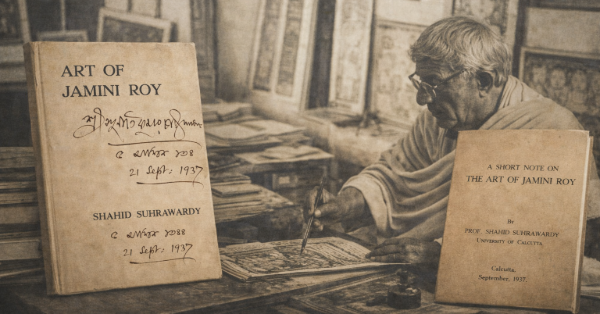 ART OF
JAMINI ROY
৫ আশ্বিন ১৩৪৪
21 Sept: 1937
SHAHID SUHRAWARDY
৫ আশ্বিন ১৩৪৪
21 Sept: 1937
A SHORT NOTE ON
THE ART OF JAMINI ROY
By
PROF. SHAHID SUHRAWARDY
UNIVERSITY OF CALCUTTA.
Calcutta,
September, 1937